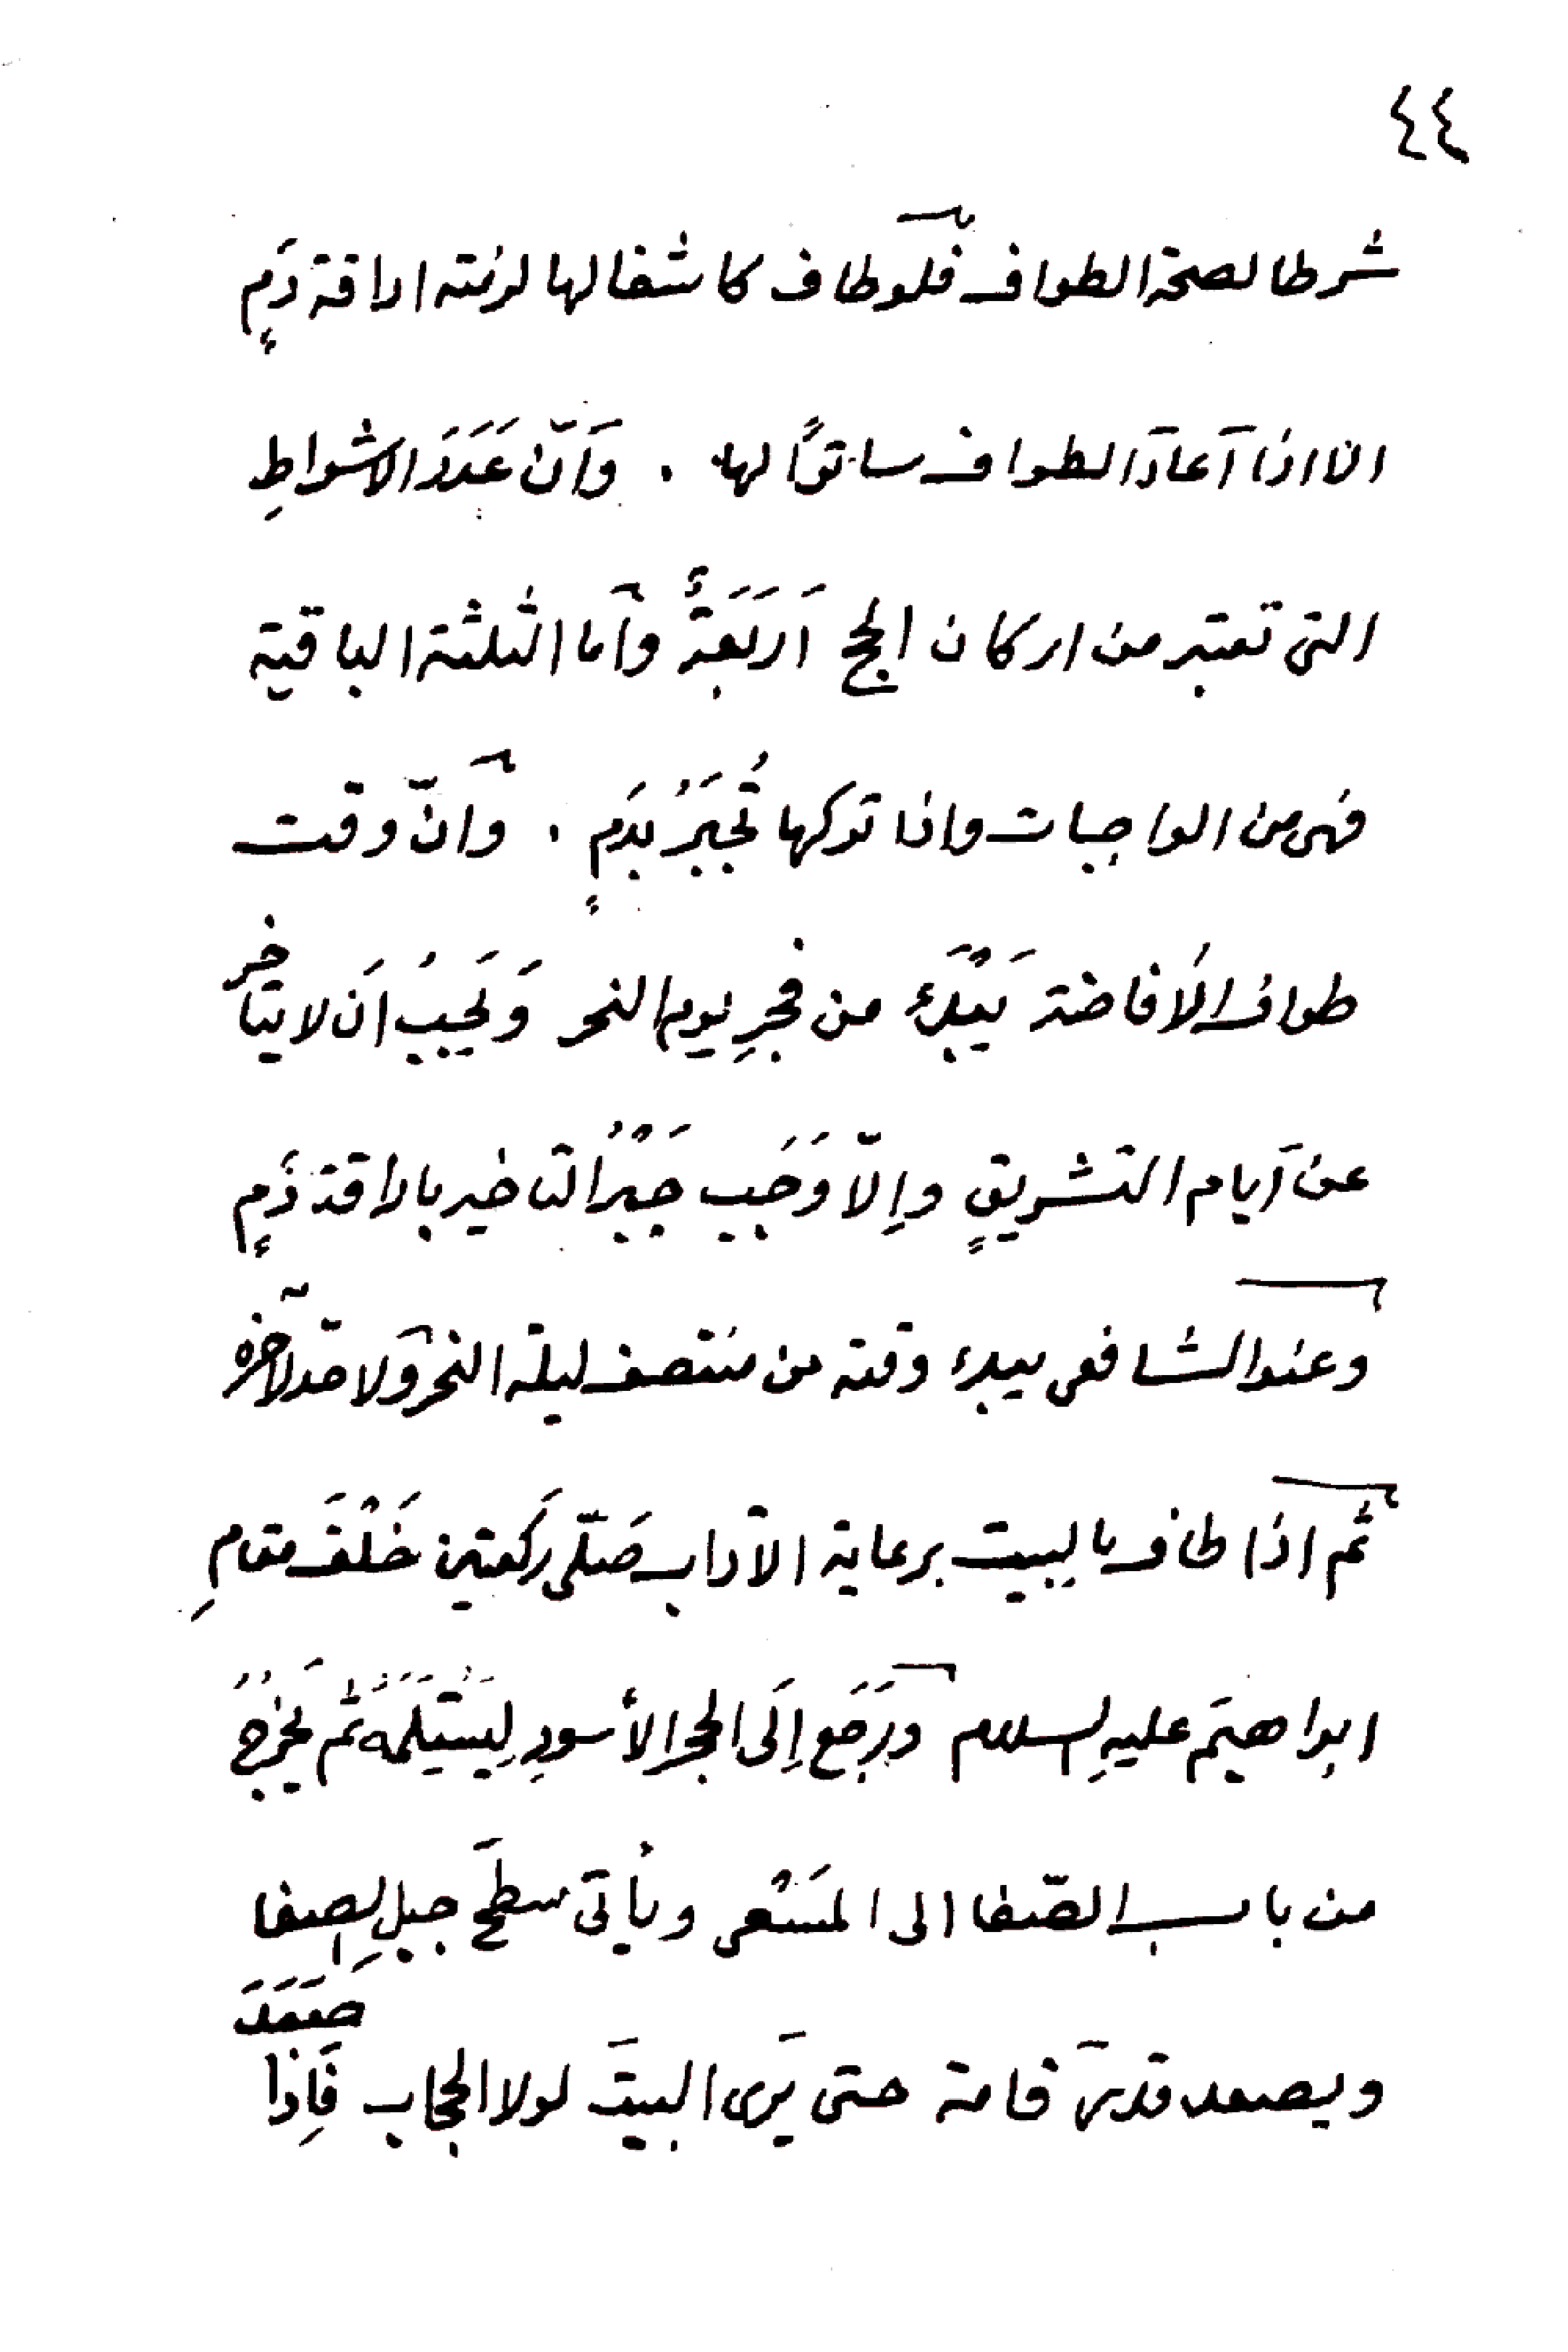 ٤٤
شرطا لصحة الطواف فلو طاف كاشفا لها لزمته اراقة دَمٍ
الا اذا اَعادَ الطواف ساتراً لها . وَاَنّ عَدَدَ الاشواطِ
التى تعتبر من اركان الحج اَربَعَةٌ واَما الثلثة الباقية
فهى من الواجبات واذا تركها تُجبَرُ بدَمٍ . واَنّ وقت
طواف الاَفاضة يَبْدَء من فجرِ يوم النحر وَيَجبُ اَن لا يتاخر
عن اَيام التشريقٍ واِلاّ وَجَب جَبْرُ التاخير باراقة دَمٍ
وعند الشافعى يبدء وقته من منتصف ليلة النحر وَلا حدّ لاَخره
ثم اذا طاف بالبيت برعاية الآداب صَلّى ركَعتين خَلْفَ مقامِ
ابراهيمَ عليهِ السلام ورَجَع اِلَى الحجر الأسودِ لِيَسْتَلَمَهُ ثم يَخرُجُ
من باب الصّفا الى المَسْعى ويأتى سطحَ جبلِ الصفا
ويصعد قدرَ قامة حتى يَرى البيتَ لولا الحجاب فَاِذا صَعَدَ